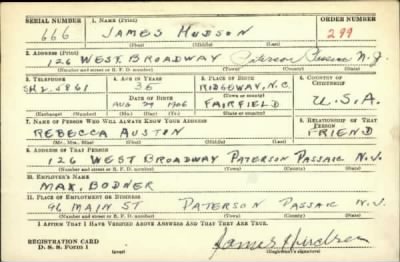 SERIAL NUMBER 1. NAME (Print) ORDER NUMBER
666 JAMES HUDSON 299
(First) (Middle) (Last)
2. ADDRESS (Print)
126 WEST BROADWAY Paterson Passaic N.J.
(Number and street or R. F. D. number) (Town) (County) (State)
3. TELEPHONE 4. AGE IN YEARS 5. PLACE OF BIRTH 6. COUNTRY OF CITIZENSHIP
SH.2.5861 35 RIDGEWAY, N.C.
DATE OF BIRTH (Town or county)
AUG 1906 FAIRFIELD U.S.A.
(Exchange) (Number) (Mo.) (Day) (Yr.) (State or country)
7. NAME OF PERSON WHO WILL ALWAYS KNOW YOUR ADDRESS 8. RELATIONSHIP OF THAT PERSON
REBECCA AUSTON FRIEND
(Mr., Mrs., Miss) (First) (Middle) (Last)
9. ADDRESS OF THAT PERSON
126 WEST BROADWAY PATERSON PASSAIC N.J.
(Number and street or R. F. D. number) (Town) (County) (State)
10. EMPLOYER'S NAME
MAX. BODNER
11. PLACE OF EMPLOYMENT OR BUSINESS
96 MAIN ST PATERSON PASSAIC N.J.
(Number and street or R. F. D. number) (Town) (County) (State)
I AFFIRM THAT I HAVE VERIFIED ABOVE ANSWERS AND THAT THEY ARE TRUE.
REGISTRATION CARD
D. S. S. Form 1
James Hudson
(Registrant's signature)